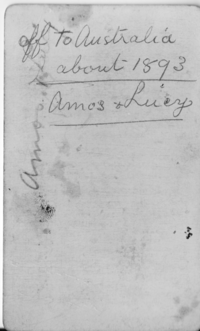 off to Australia
about 1893
Amos & Lucy
Amos